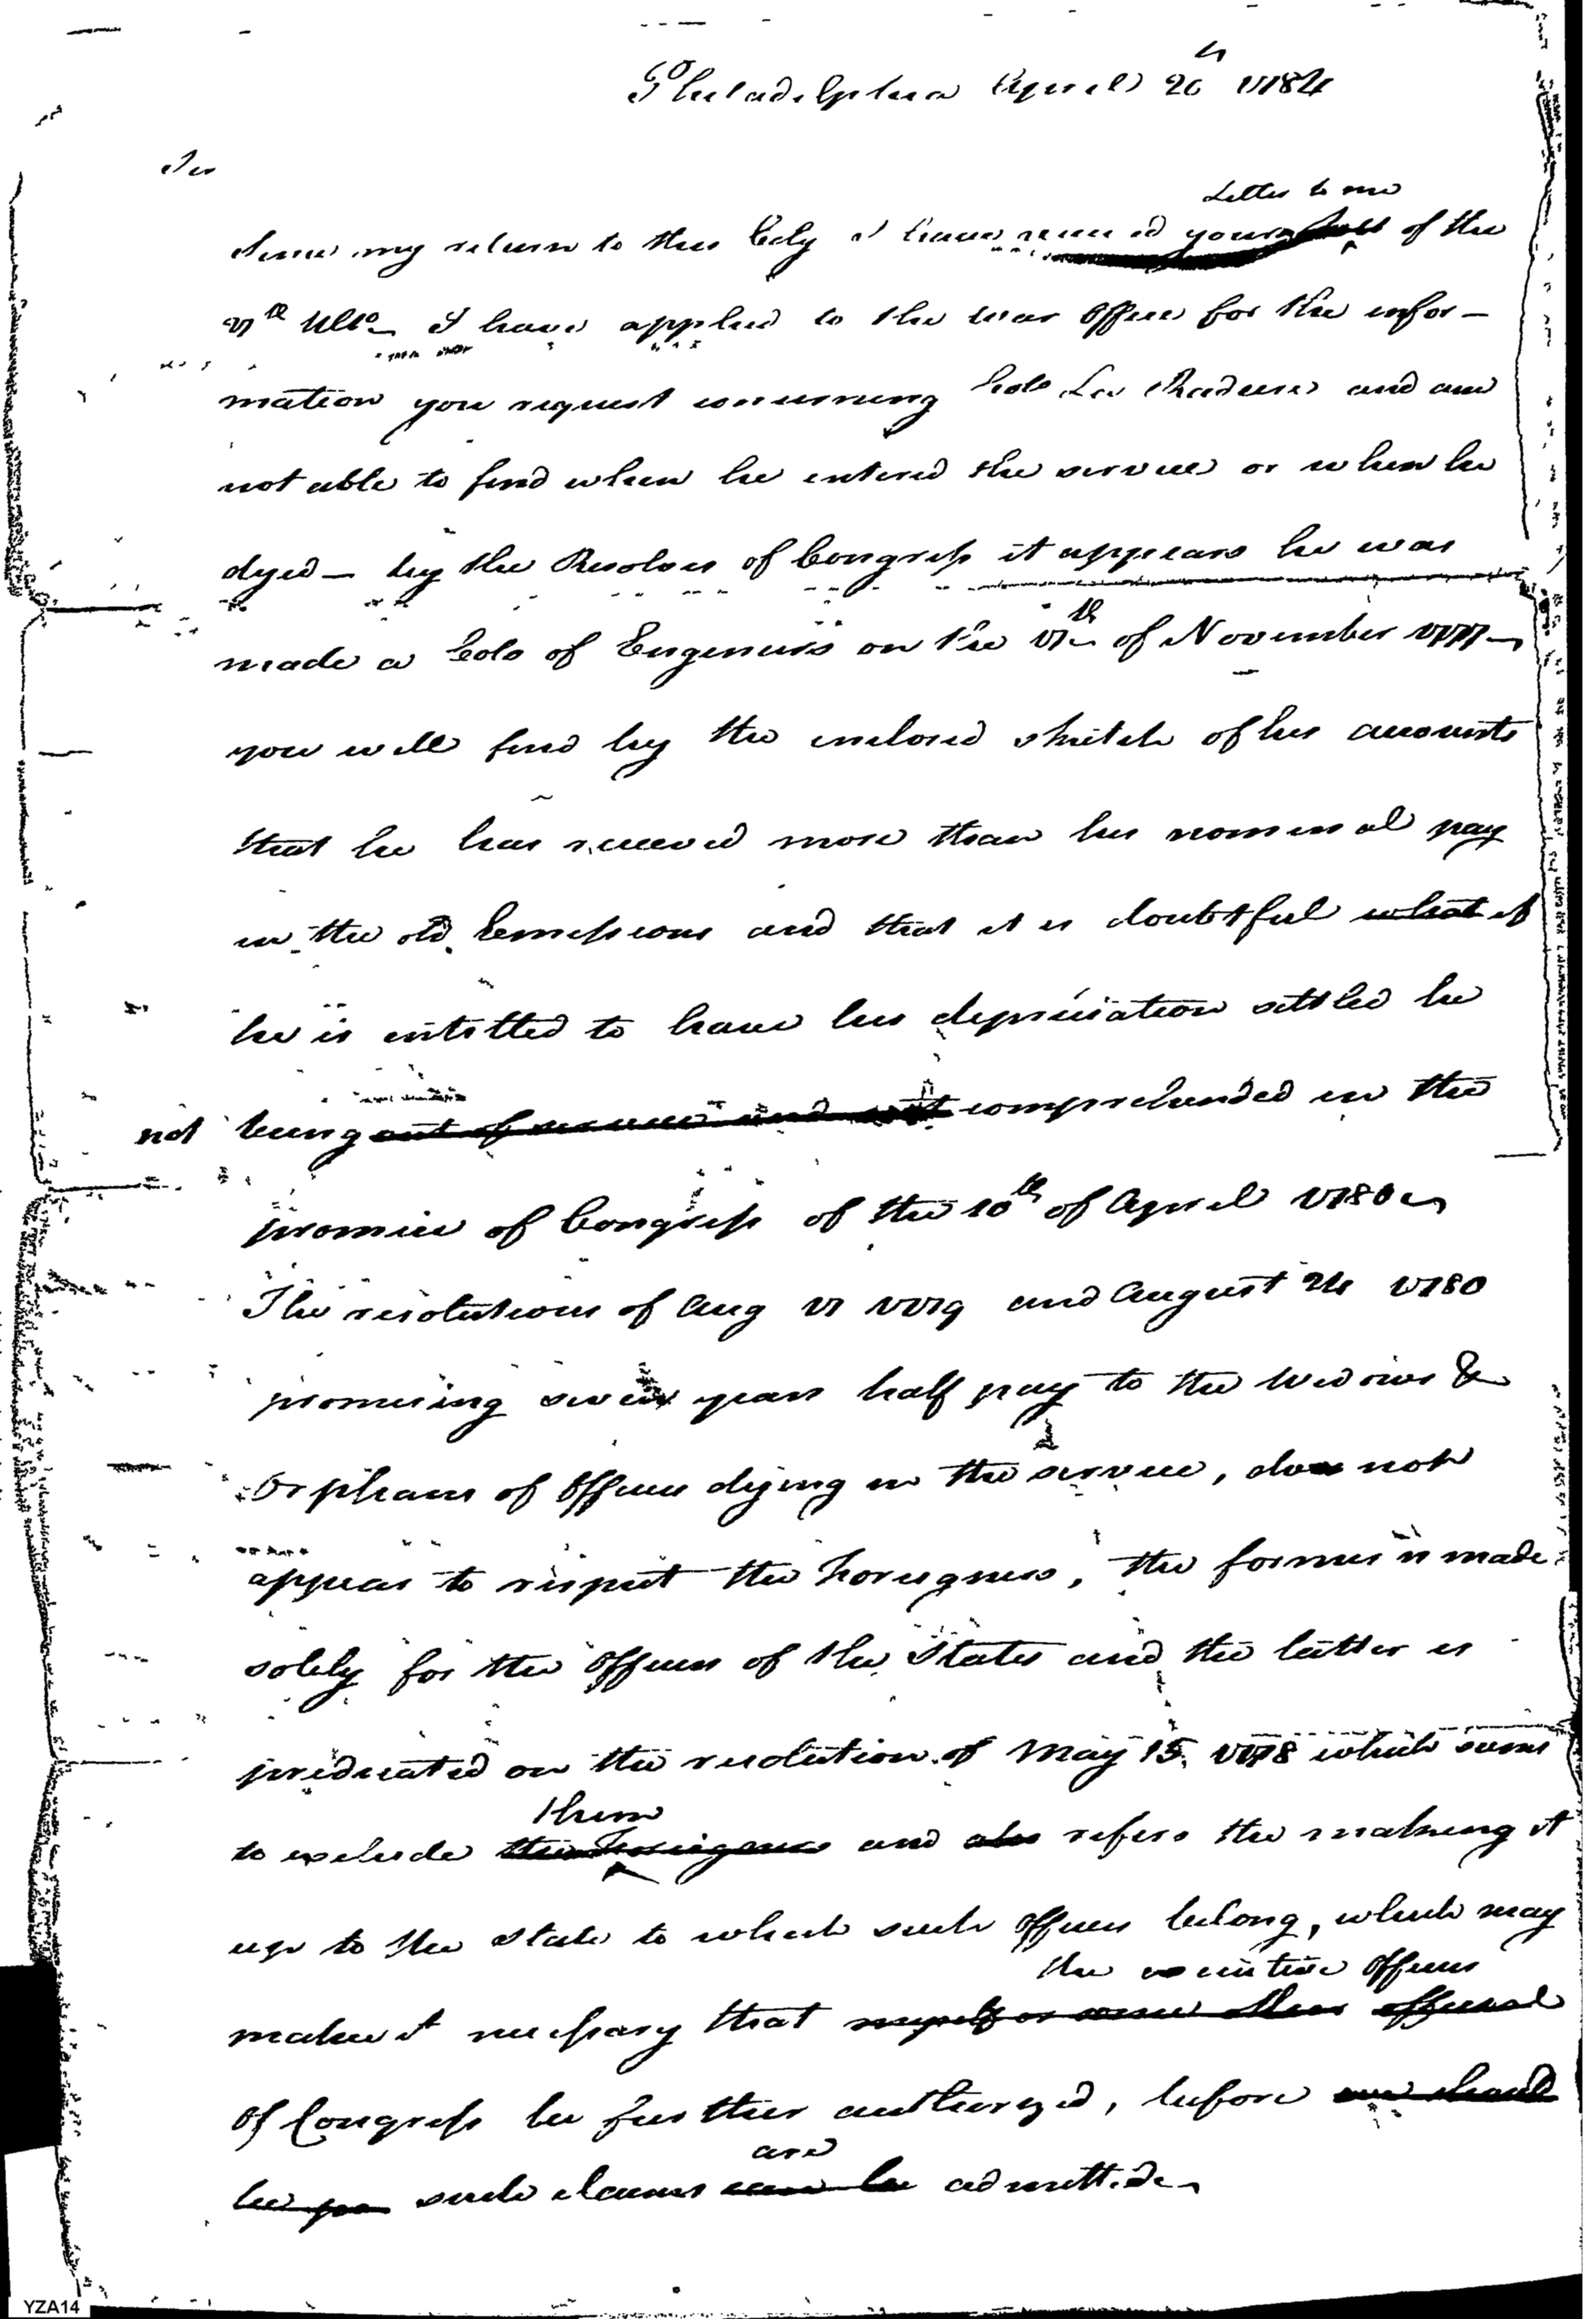 Philadelphia April 26 1784
Sir
Letter to me
Since my return to this City I have received your of the
7th Ulto I have applied to the war Office for the infor-
mation you request concerning Colo La Radiere and am
not able to find when he entered the service or when he
dyed — by the Resolves of Congress it appears he was
made a Colo of Engineers on the 17th of November 1777
you will find by the inclosed sketch of his accounts
that he has received more than his nominal pay
in the old Emissions and that it is doubtful what if
he is intitled to have his depreciation settled he
not being out of service and not comprehended in the
promise of Congress of the 10th of April 1780
The resolutions of Aug 17 1779 and August 24 1780
promising seven years half pay to the Widows &
Orphans of Officers dying in the service, does not
appear to respect the Foreigners, the former is made
solely for the Officers of the States and the latter is
predicated on the resolution of May 15. 1778 which seems
them
to exclude the Foreigners and also refers the making it
up to the State to which such Officers belong, which may
the executive Officers
make it necessary that myself or some other official
of Congress be further authorized, before we should
are
be such claims can be admitted
YZA14